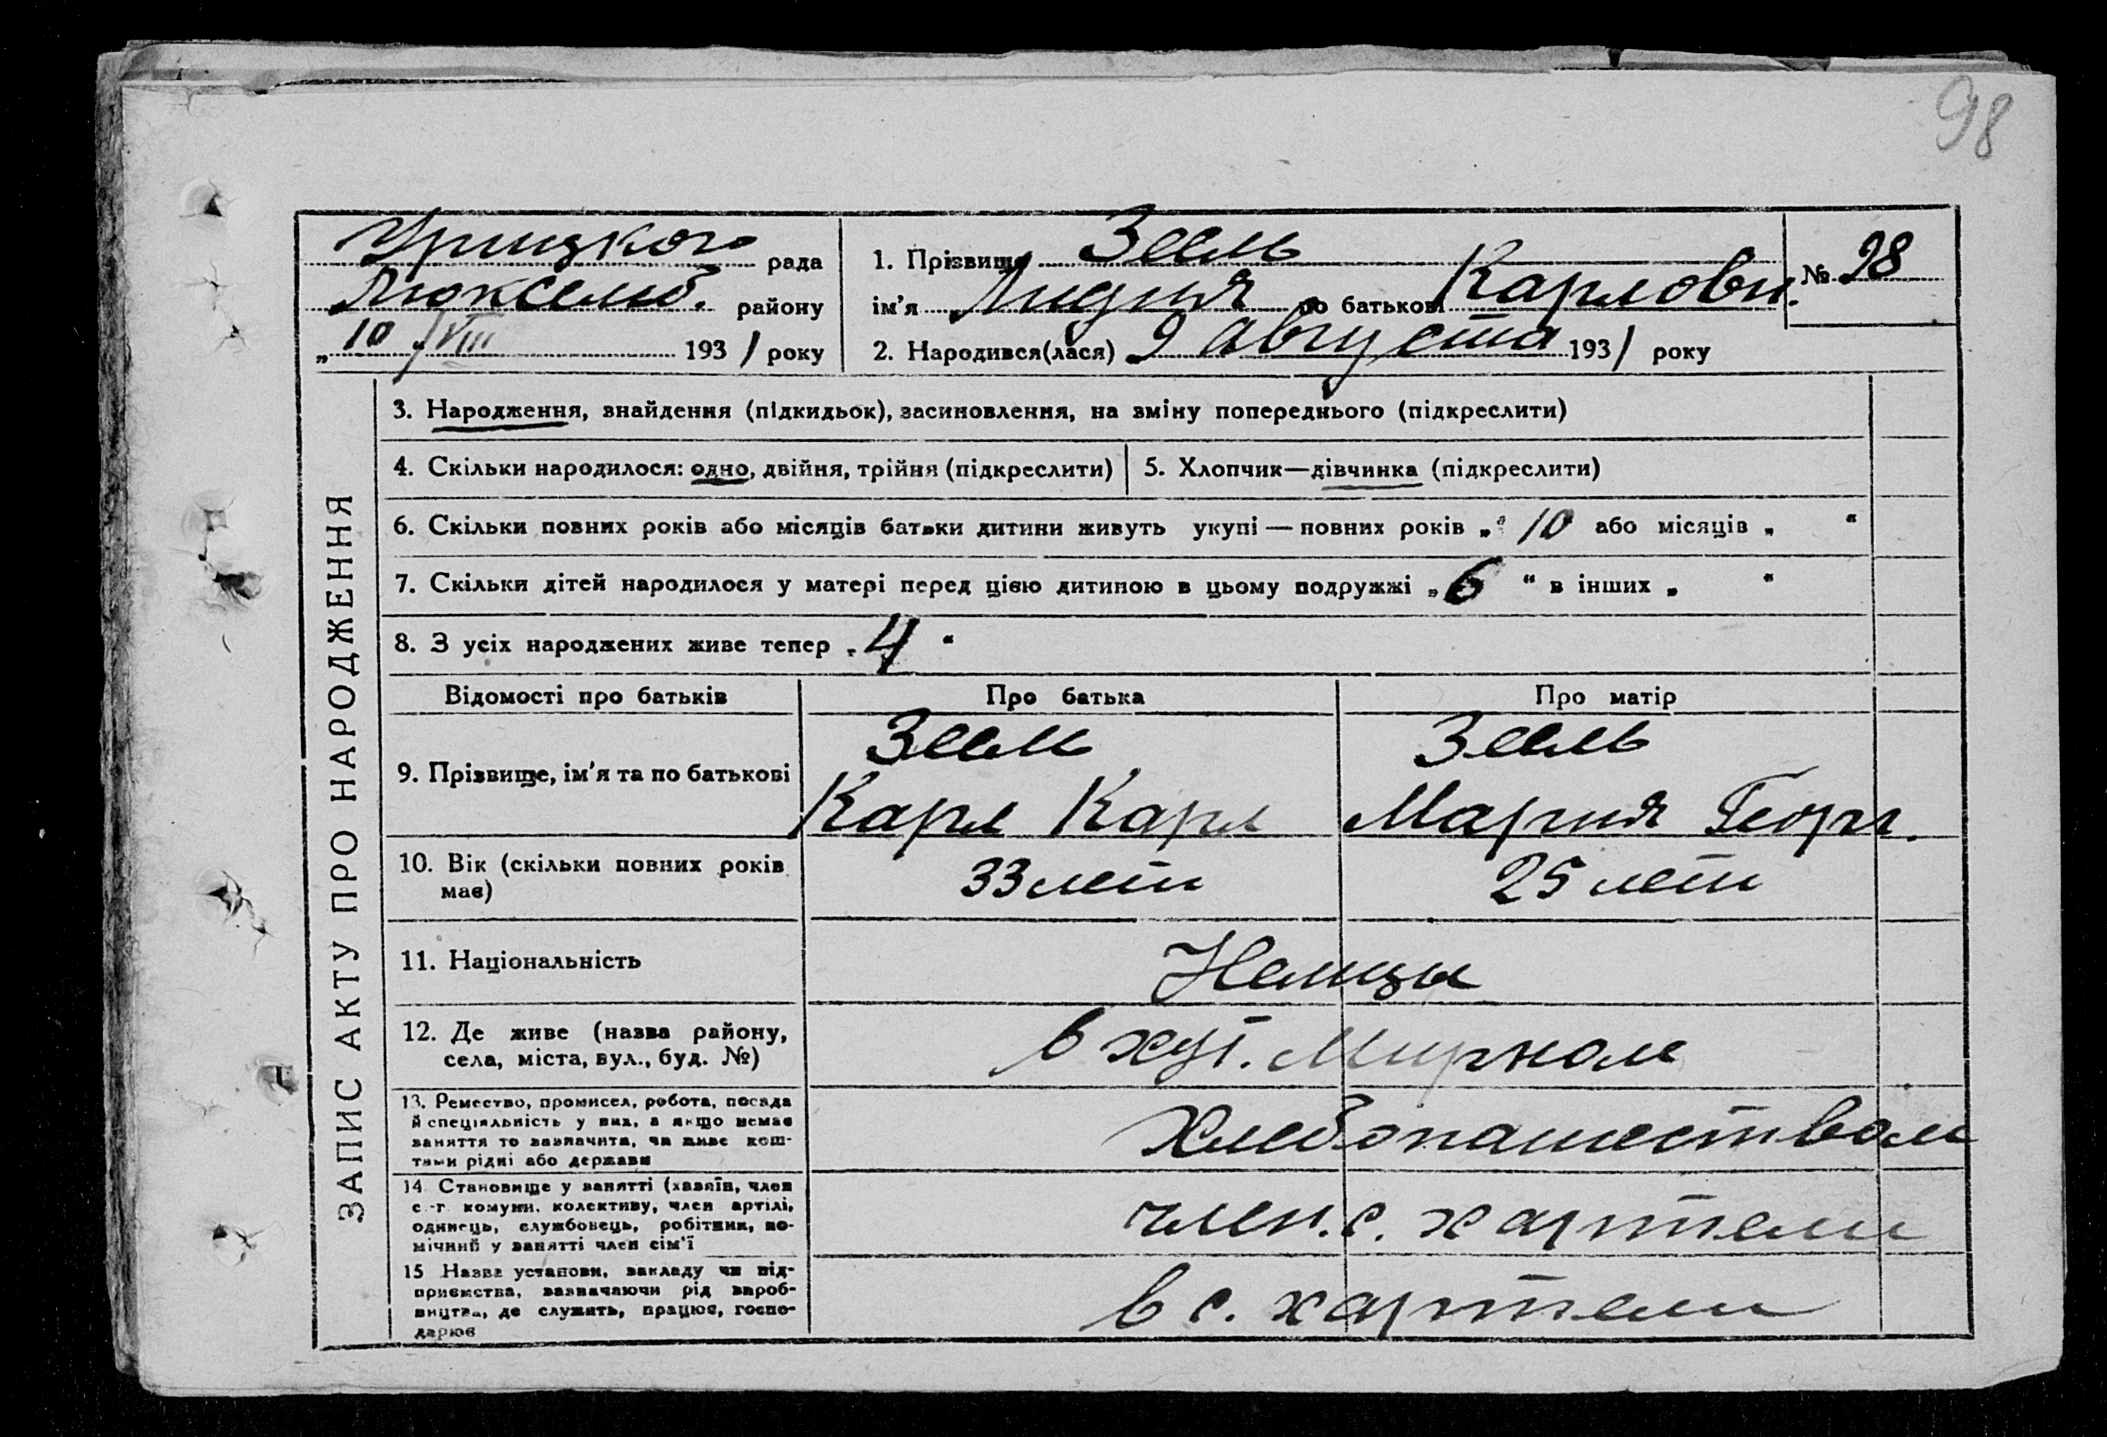 98
Урицкого рада
Люксемб. району
„10 / VIII 1931 року
1. Прізвище Зеель
ім'я Лидия по батькові Карловн.
№ 98
2. Народився(лася) 9 августа 1931 року
ЗАПИС АКТУ ПРО НАРОДЖЕННЯ
3. Народження, знайдення (підкидьок), засиновлення, на зміну попереднього (підкреслити)
4. Скільки народилося: одно, двійня, трійня (підкреслити)
5. Хлопчик—дівчинка (підкреслити)
6. Скільки повних років або місяців батьки дитини живуть укупі — повних років „ 10 або місяців „ “
7. Скільки дітей народилося у матері перед цією дитиною в цьому подружжі „ 6 “ в інших „ “
8. З усіх народжених живе тепер „ 4 “
Відомості про батьків Про батька Про матір
9. Прізвище, ім'я та по батькові
Зеель
Карл Карл
Зеель
Мария Георг.
10. Вік (скільки повних років
має)
33 лет
25 лет
11. Національність
Немцы
12. Де живе (назва району,
села, міста, вул., буд. №)
в хут. Мирном
13. Ремество, промисел, робота, посада
й спеціяльність у них, а якщо немає
заняття то зазначити, чи живе кош-
тами рідні або держави
Хлебопашеством
14. Становище у занятті (хазяїн, член
с.-г. комуни, колективу, член артілі,
одинець, службовець, робітник, по-
мічний у занятті член сім'ї
член. с. х артели
15 Назва установи, закладу чи під-
приємства, зазначаючи рід вироб-
ництва, де служить, працює, госпо-
дарює
в с. х артели